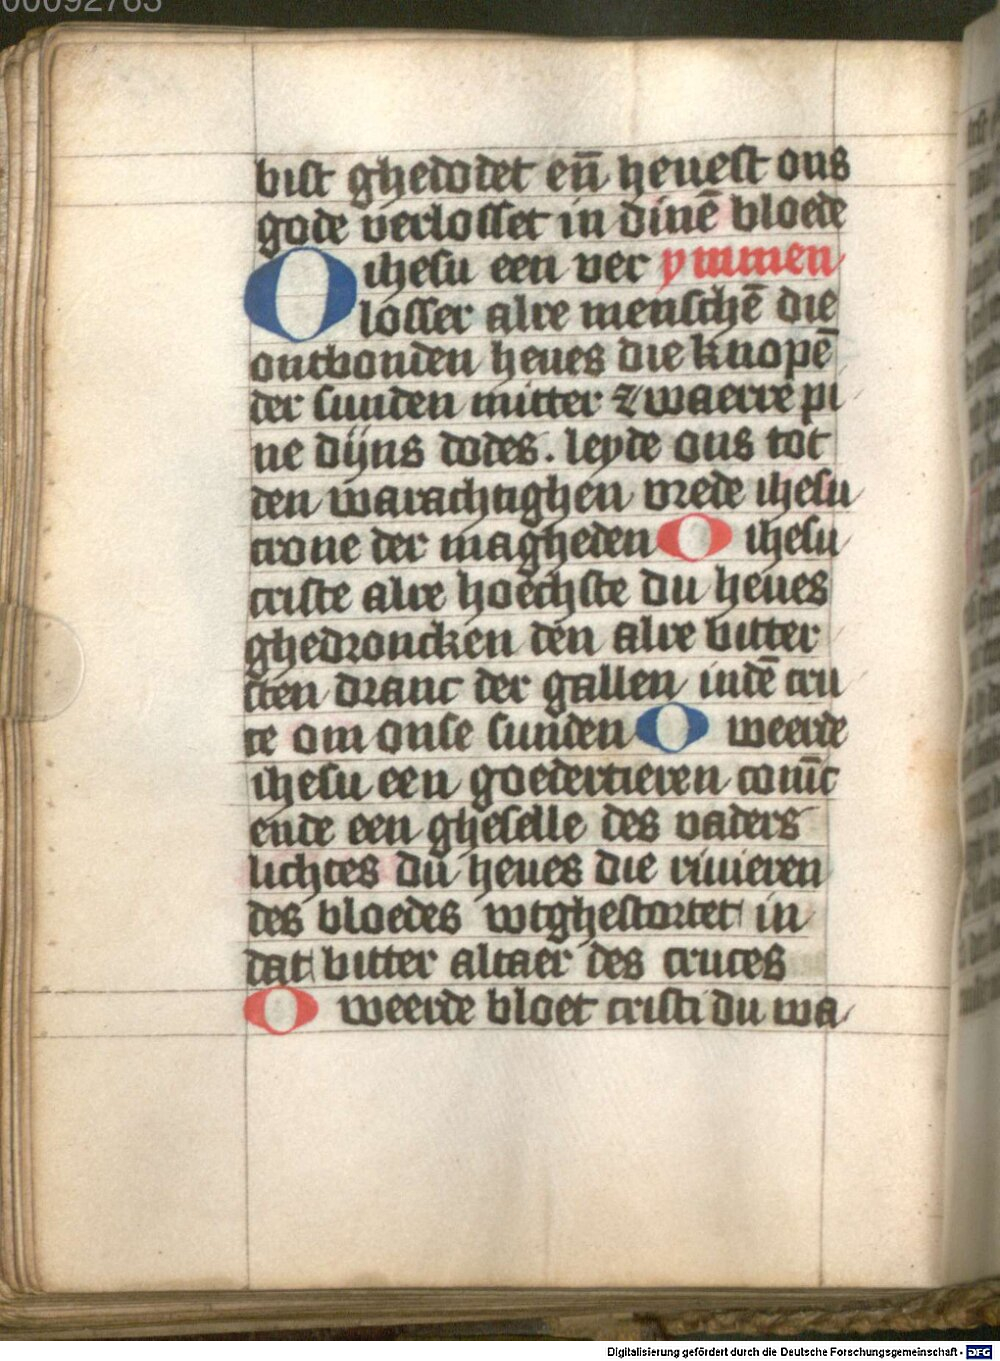 00092763
bist ghedodet en̄ heuest ons
gode verlosset in dinē bloede
O ihesu een ver ymmen
losser alre menschē die
ontbonden heues die knopē
der sunden mitter zwaerre pi
ne dijns dodes. leyde ons tot
den warachtighen vrede ihesu
crone der magheden O ihesu
criste alre hoechste du heues
ghedroncken den alre bitter
sten dranc der gallen indē cru
ce om onse sunden O weerde
ihesu een goedertieren
ende een gheselle des vaders
lichtes du heues die riuieren
des bloedes wtghestortet in
dat bitter altaer des cruces
O weerde bloet cristi du wa
Digitalisierung gefördert durch die Deutsche Forschungsgemeinschaft - DFG